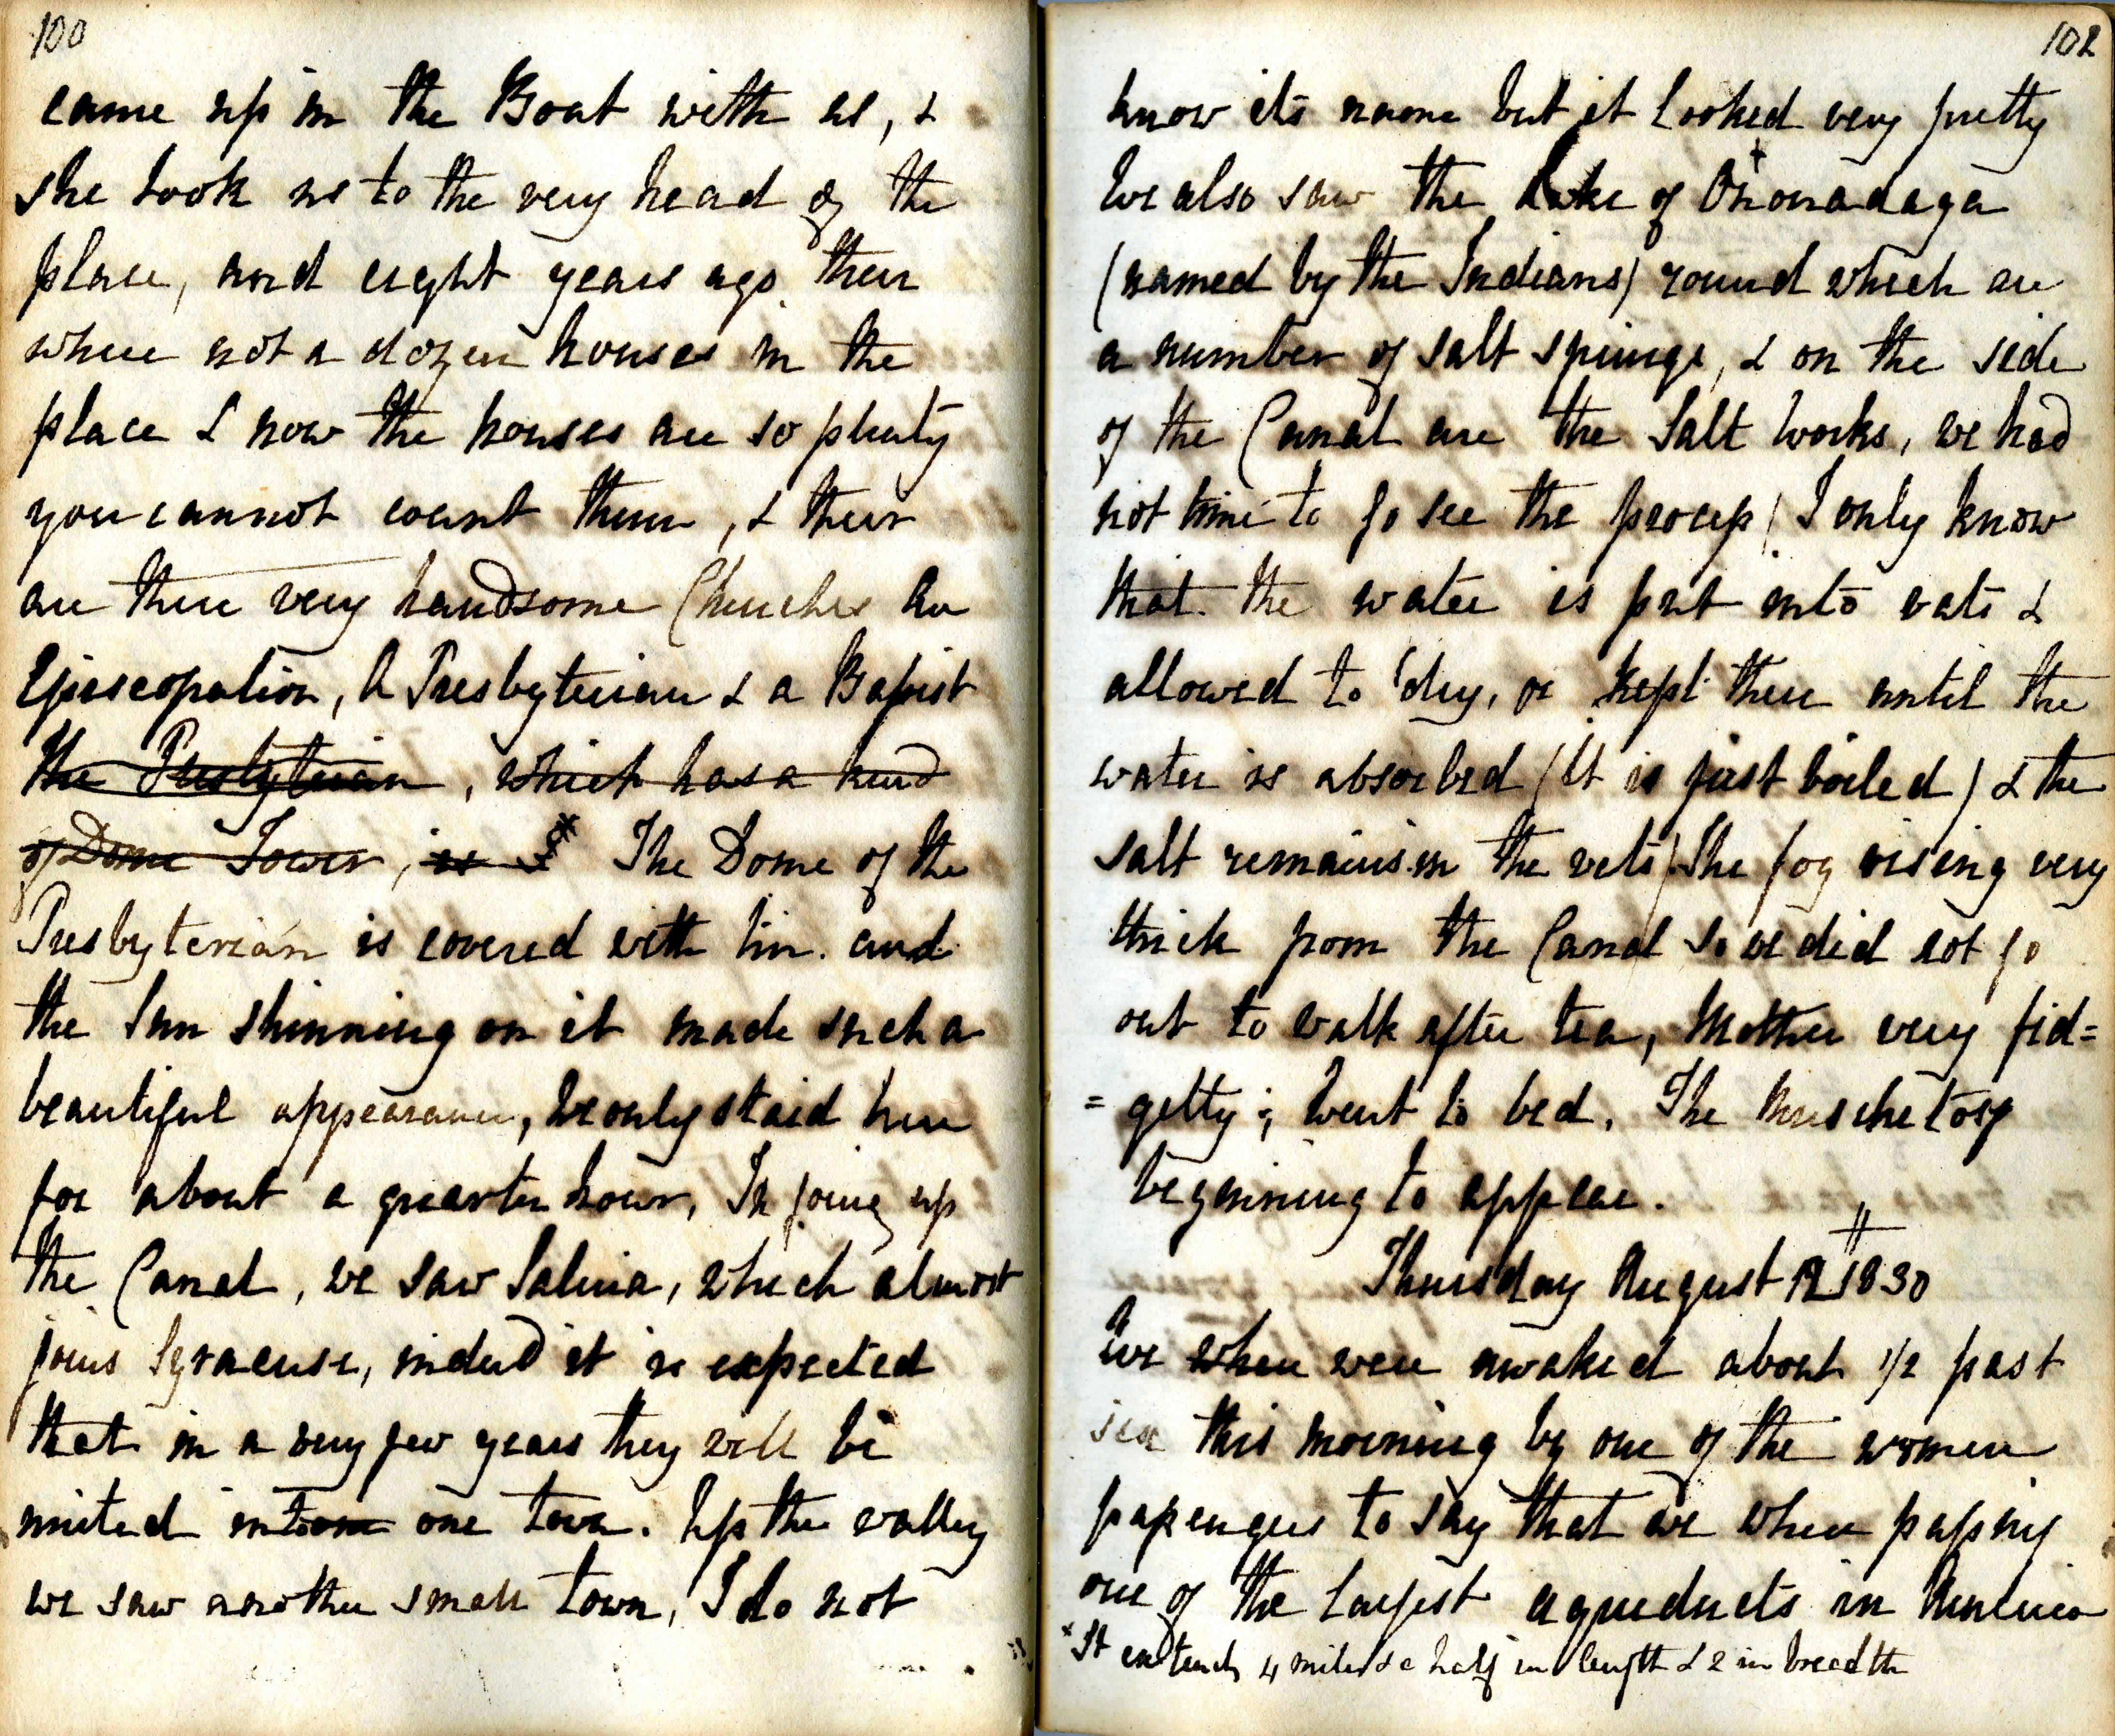 100
came up in the Boat with us, &
she took us to the very head of the
place, and eight years ago their
where not a dozen houses in the
place & now the houses are so plenty
you cannot count them, & their
are three very handsome Churches An
Episcopalion, A Presbyterian & a Bapist
the Presbyterian, which has a kind
of Dome Tower, is The Dome of the
Presbyterian is covered with tin. and
the Sun shinning on it made such a
beautiful appearance, we only staid here
for about a quarter hour, In going up
the Canal, we saw Salina, which almost
joins Syracuse, indeed it is expected
that in a very few years they will be
united into one one town. Up the valley
we saw another small town, I do not
102
know its name but it looked very pretty
We also saw the Lake of Onondaga
(named by the Indians) round which are
a number of salt springs, & on the side
of the Canal are the Salt works, we had
not time to go see the process (I only know
that the water is put into vats &
allowed to dry, or kept there until the
water is absorbed (It is just boiled) & the
salt remains in the vats) The fog rising very
thick from the Canal so we did not go
out to walk after tea, Mother very fid=
=getty; went to bed. The Muschetoes
beginning to appear.
Thursday August 12 1830
We when were awaked about 1/2 past
six this morning by one of the women
passengers to say that we when passing
one of the largest aqueducts in America
* It extends 4 miles & a half in length & 2 in breadth